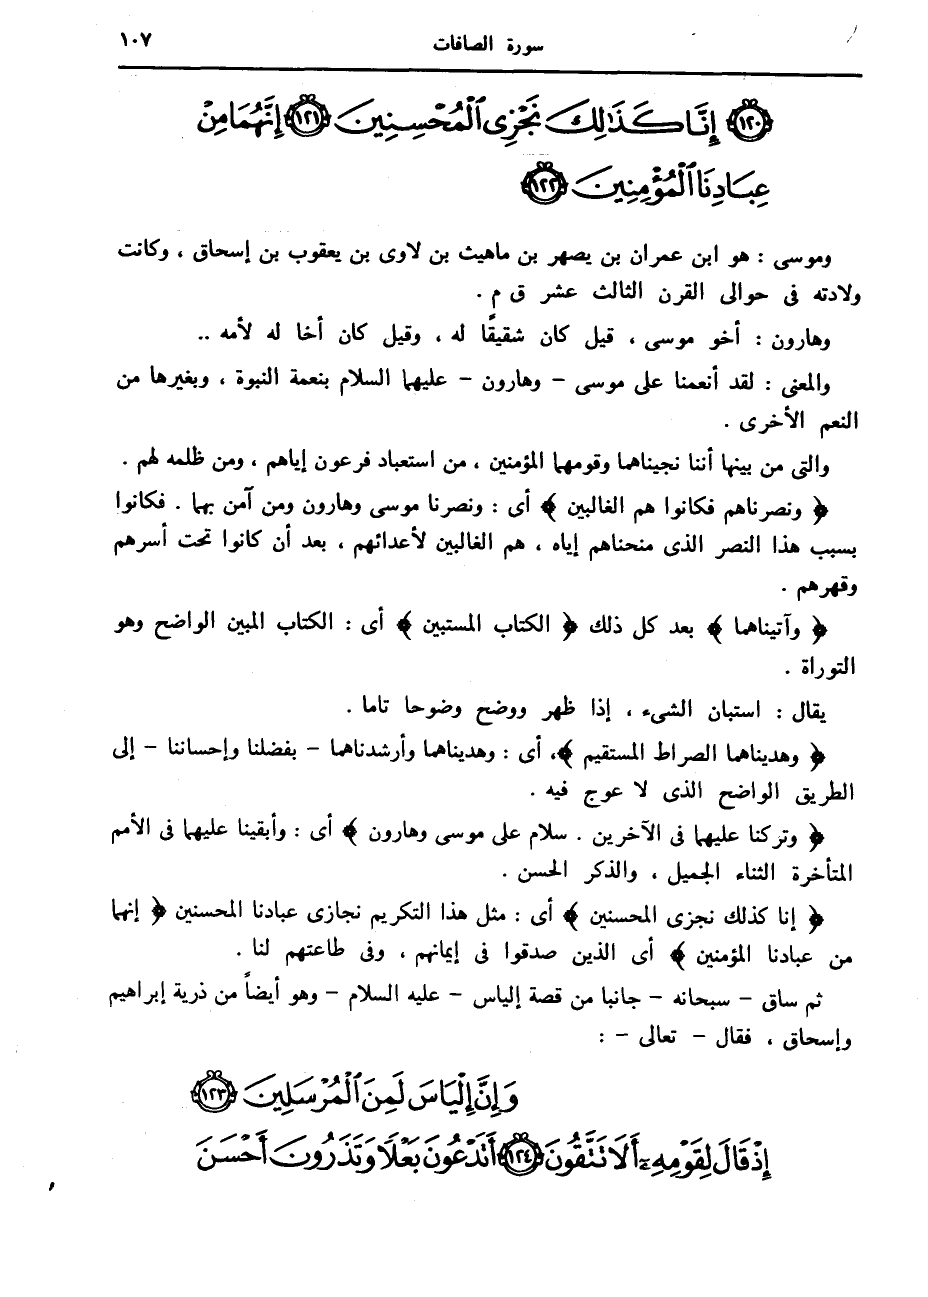 سورة الصافات ١٠٧
﴿١٢٠﴾ إِنَّا كَذَٰلِكَ نَجْزِى ٱلْمُحْسِنِينَ ﴿١٢١﴾ إِنَّهُمَا مِنْ
عِبَادِنَا ٱلْمُؤْمِنِينَ ﴿١٢٢﴾
وموسى : هو ابن عمران بن يصهر بن ماهيث بن لاوى بن يعقوب بن إسحاق ، وكانت
ولادته فى حوالى القرن الثالث عشر ق م .
وهارون : أخو موسى ، قيل كان شقيقًا له ، وقيل كان أخا له لأمه ..
والمعنى : لقد أنعمنا على موسى – وهارون – عليهما السلام بنعمة النبوة ، وبغيرها من
النعم الأخرى .
والتى من بينها أننا نجيناهما وقومهما المؤمنين ، من استعباد فرعون إياهم ، ومن ظلمه لهم .
﴿ ونصرناهم فكانوا هم الغالبين ﴾ أى : ونصرنا موسى وهارون ومن آمن بهما . فكانوا
بسبب هذا النصر الذى منحناهم إياه ، هم الغالبين لأعدائهم ، بعد أن كانوا تحت أسرهم
وقهرهم .
﴿ وآتيناهما ﴾ بعد كل ذلك ﴿ الكتاب المستبين ﴾ أى : الكتاب المبين الواضح وهو
التوراة .
يقال : استبان الشىء ، إذا ظهر ووضح وضوحا تاما .
﴿ وهديناهما الصراط المستقيم ﴾، أى : وهديناهما وأرشدناهما – بفضلنا وإحساننا – إلى
الطريق الواضح الذى لا عوج فيه .
﴿ وتركنا عليهما فى الآخرين . سلام على موسى وهارون ﴾ أى : وأبقينا عليهما فى الأمم
المتأخرة الثناء الجميل ، والذكر الحسن .
﴿ إنا كذلك نجزى المحسنين ﴾ أى : مثل هذا التكريم نجازى عبادنا المحسنين ﴿ إنهما
من عبادنا المؤمنين ﴾ أى الذين صدقوا فى إيمانهم ، وفى طاعتهم لنا .
ثم ساق – سبحانه – جانبا من قصة إلياس – عليه السلام – وهو أيضاً من ذرية إبراهيم
وإسحاق ، فقال – تعالى – :
وَإِنَّ إِلْيَاسَ لَمِنَ ٱلْمُرْسَلِينَ ﴿١٢٣﴾
إِذْ قَالَ لِقَوْمِهِۦٓ أَلَا تَتَّقُونَ ﴿١٢٤﴾ أَتَدْعُونَ بَعْلًا وَتَذَرُونَ أَحْسَنَ